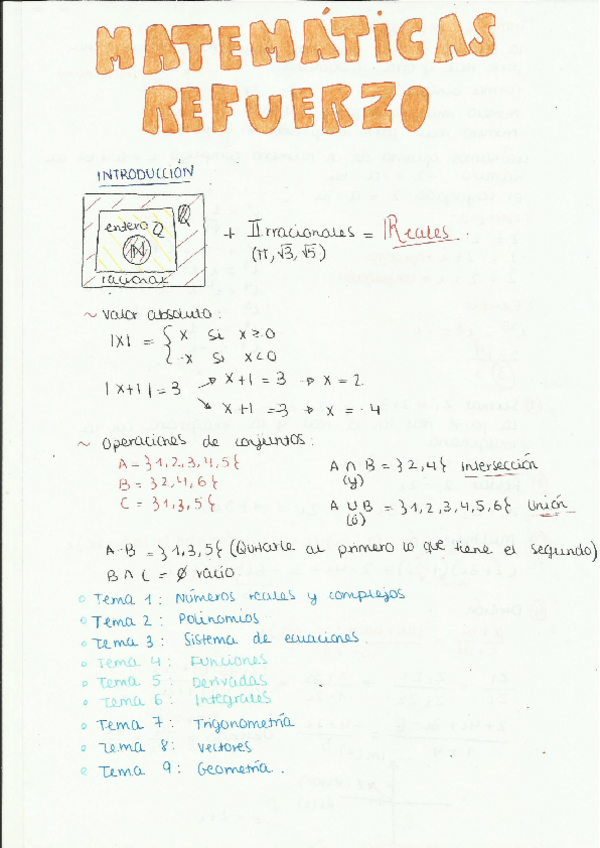 MATEMÁTICAS
REFUERZO
INTRODUCCIÓN
Q
entero Z
N
racional
+ Irracionales = Reales.
(π, √3, √5)
~ Valor absoluto:
|x| = { x si x ≥ 0
-x si x < 0
|x+1| = 3 → x+1 = 3 → x = 2
→ x+1 = -3 → x = -4
~ Operaciones de conjuntos:
A = }1,2,3,4,5{
B = }2,4,6{
C = }1,3,5{
A ∩ B = }2,4{ Intersección
(y)
A ∪ B = }1,2,3,4,5,6{ Unión
(ó)
A-B = }1,3,5{ (Quitarle al primero lo que tiene el segundo)
B ∩ C = ∅ vacío
◦ Tema 1: Números reales y complejos
◦ Tema 2: Polinomios
◦ Tema 3: Sistema de ecuaciones
◦ Tema 4: Funciones
◦ Tema 5: Derivadas
◦ Tema 6: Integrales
◦ Tema 7: Trigonometría
◦ Tema 8: Vectores
◦ Tema 9: Geometría.